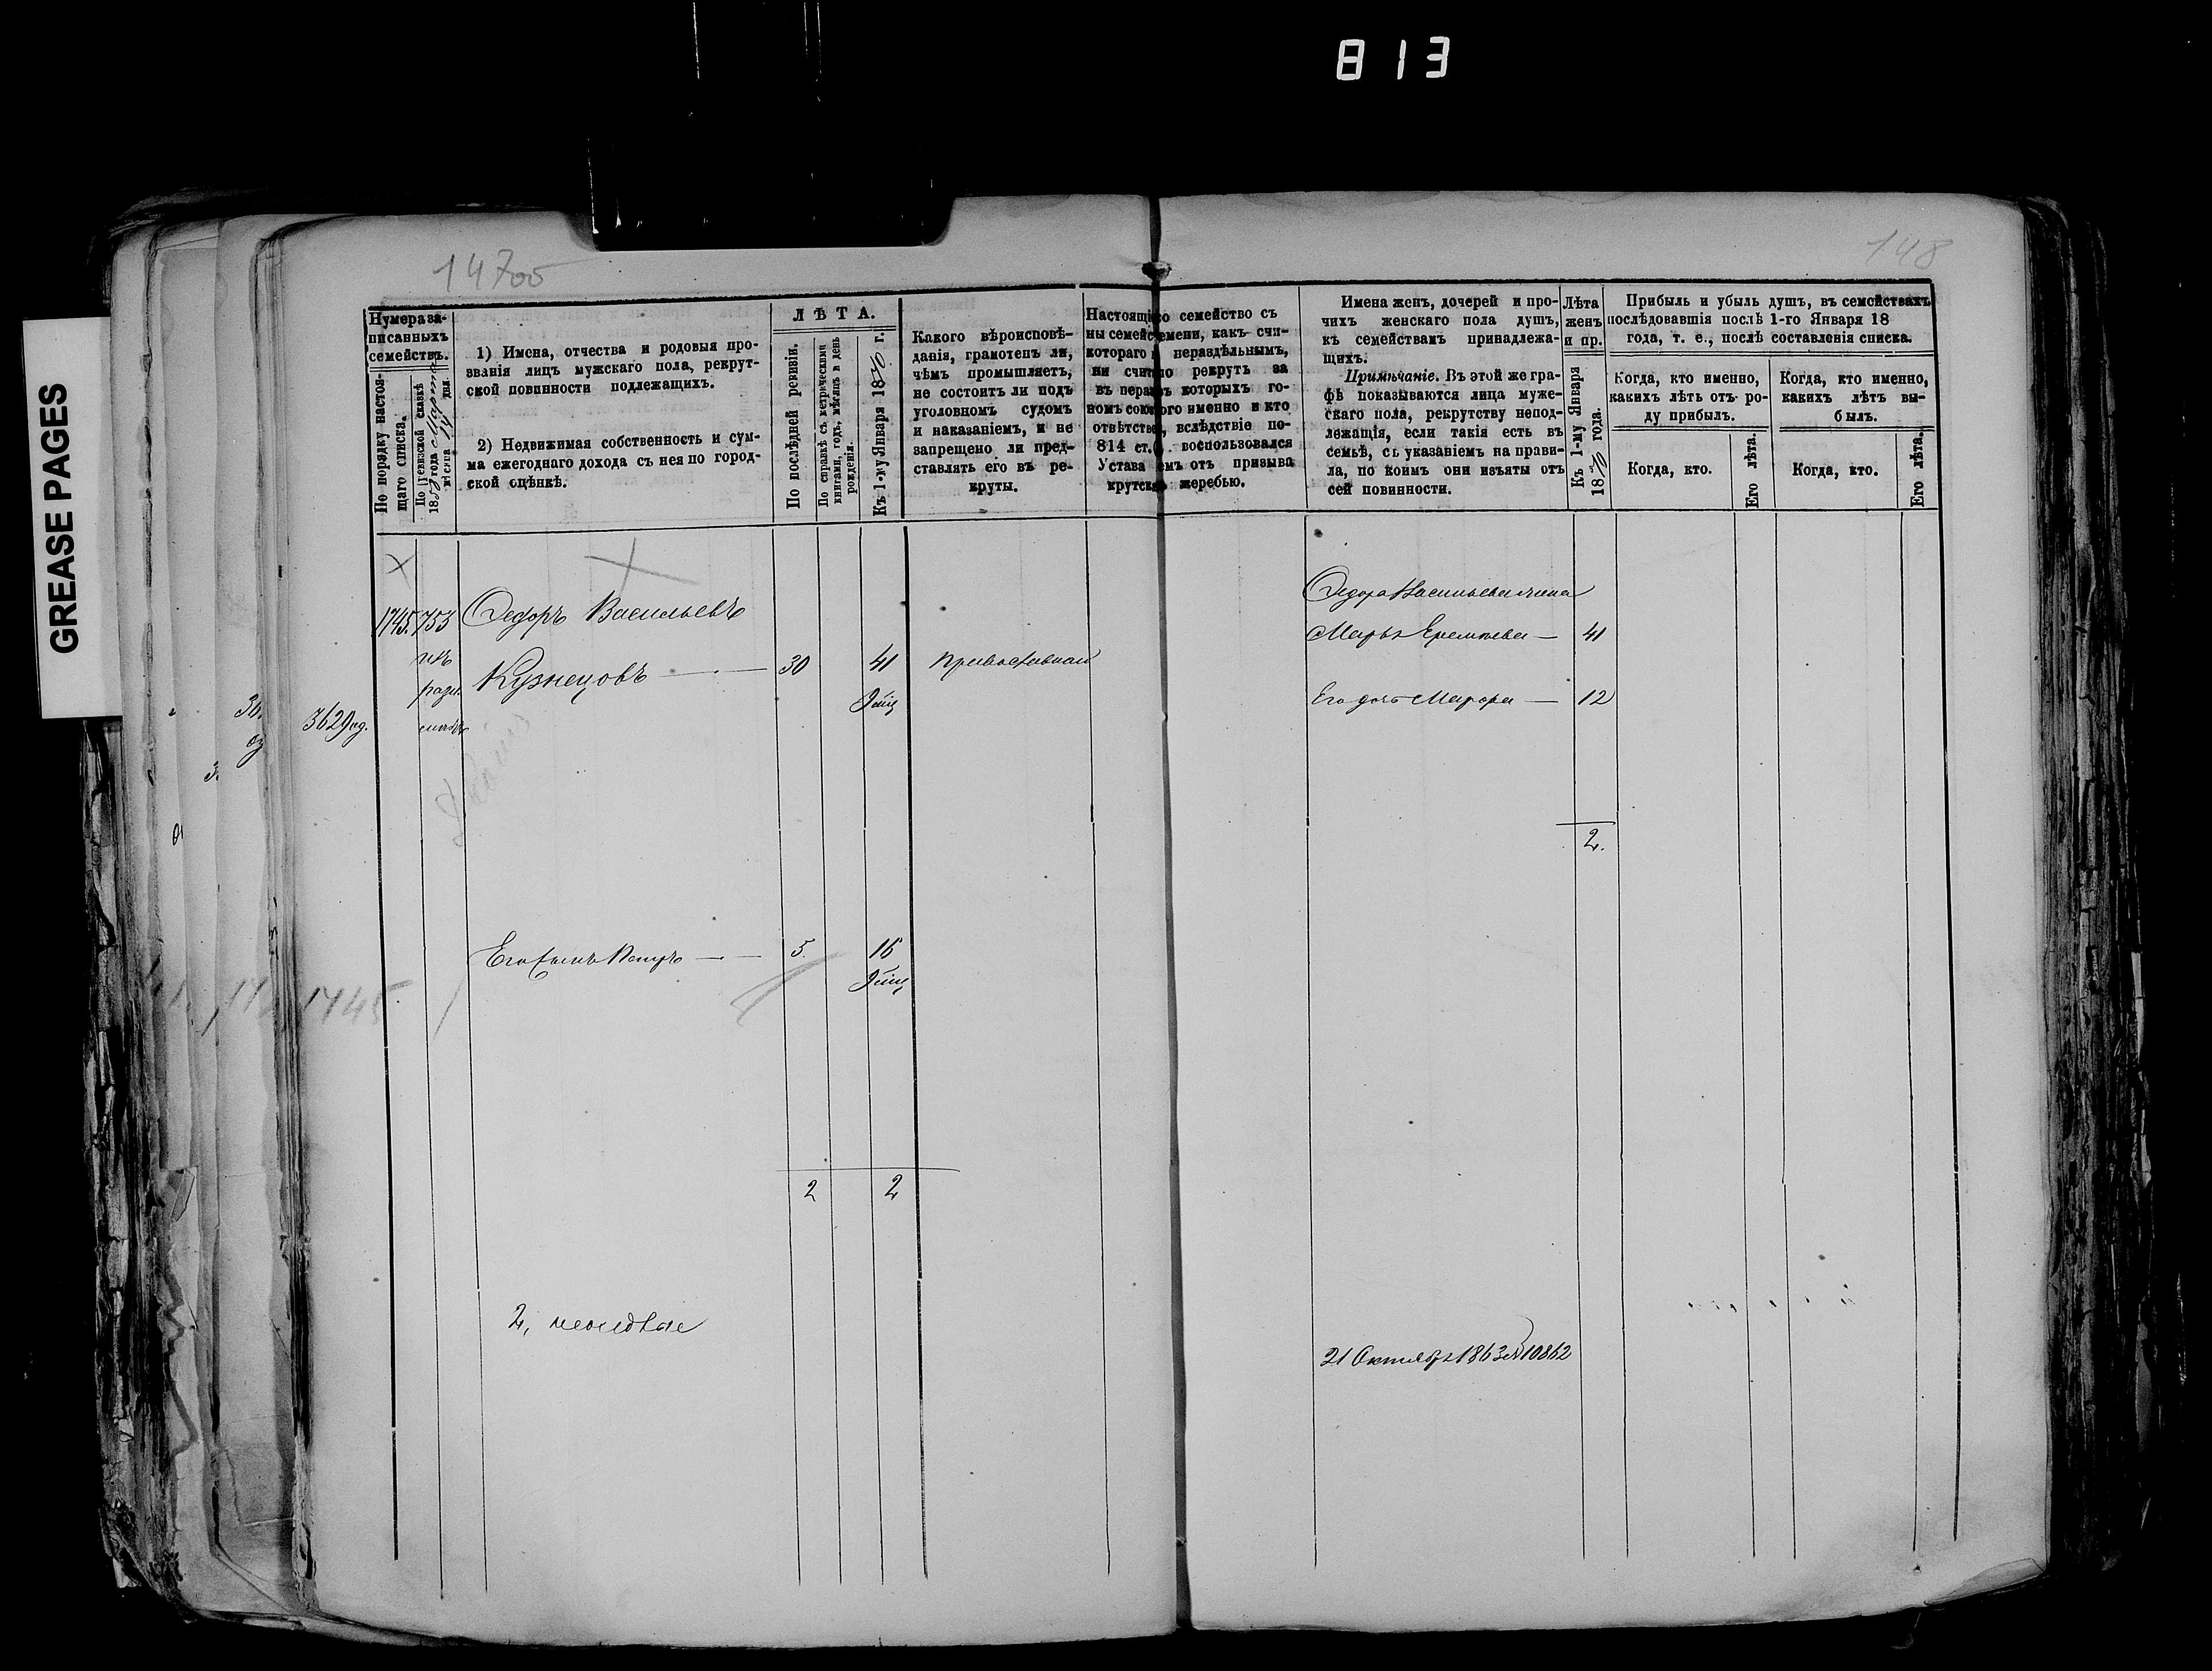 813
GREASE PAGES
148
Нумера за-
писанныхъ
семействъ.
По порядку настоя-
щаго списка.
По ревизской сказкѣ
1858 года Марта
мѣсяца 14 дня.
1) Имена, отчества и родовыя про-
званія лицъ мужскаго пола, рекрут-
ской повинности подлежащихъ.
2) Недвижимая собственность и сум-
ма ежегоднаго дохода съ нея по город-
ской оцѣнкѣ.
ЛѢТА.
По послѣдней ревизіи.
По справкѣ съ метрическими
книгами, годъ, мѣсяцъ и день
рожденія.
Къ 1-му Января 18 г.
Какого вѣроисповѣ-
данія, грамотенъ ли,
чѣмъ промышляетъ,
не состоитъ ли подъ
уголовномъ судомъ
и наказаніемъ, и не
запрещено ли пред-
ставлять его въ ре-
круты.
Настоящ о семейство съ
ны семейс емени, какъ счи-
котораго нераздѣльнымъ,
ни счит о рекрутъ за
въ нера ъ которыхъ го-
номъ сою ого именно и кто
отвѣтств , вслѣдствіе по-
814 ст. воспользовался
Устава емъ отъ призыва
крутск жеребью.
Имена женъ, дочерей и про-
чихъ женскаго пола душъ,
къ семействамъ принадлежа-
щихъ.
Примѣчаніе. Въ этой же гра-
фѣ показываются лица муже-
скаго пола, рекрутству непод-
лежащія, если такія есть въ
семьѣ, съ указаніемъ на прави-
ла, по коимъ они изъяты отъ
сей повинности.
Лѣта
женъ
и пр.
Къ 1-му Января
18 года.
Прибыль и убыль душъ, въ семействахъ
послѣдовавшія послѣ 1-го Января 18
года, т. е., послѣ составленія списка.
Когда, кто именно,
какихъ лѣтъ отъ ро-
ду прибылъ.
Когда, кто именно,
какихъ лѣтъ вы-
былъ.
Когда, кто.
Его лѣта.
Когда, кто.
Его лѣта.
1745. 753 Ѳедоръ Васильевъ
Кузнецовъ 30 41 православнаго
3629
Его сынъ Петръ 5. 16
1745
2 2
2,
Ѳедора Васильева жена
Марья Еремѣева 41
Его дочь Марфа 12
2.
21 Октября 1863 № 10862